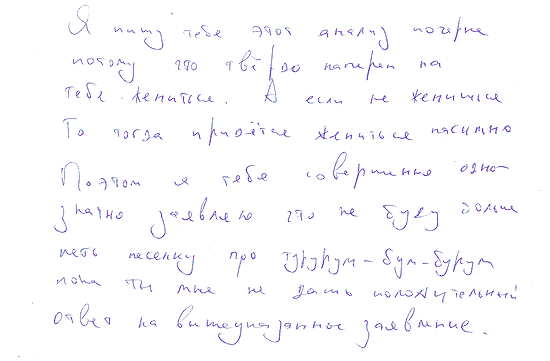 Я пишу тебе этот анализ почерка
потому что твёрдо намерен на
тебе жениться. А если не жениться
То тогда придётся жениться насильно
Поэтому я тебе совершенно одно-
значно заявляю что не буду больше
петь песенку про турурум-бум-бурум
пока ты мне не дашь положительный
ответ на вышеуказанное заявление.